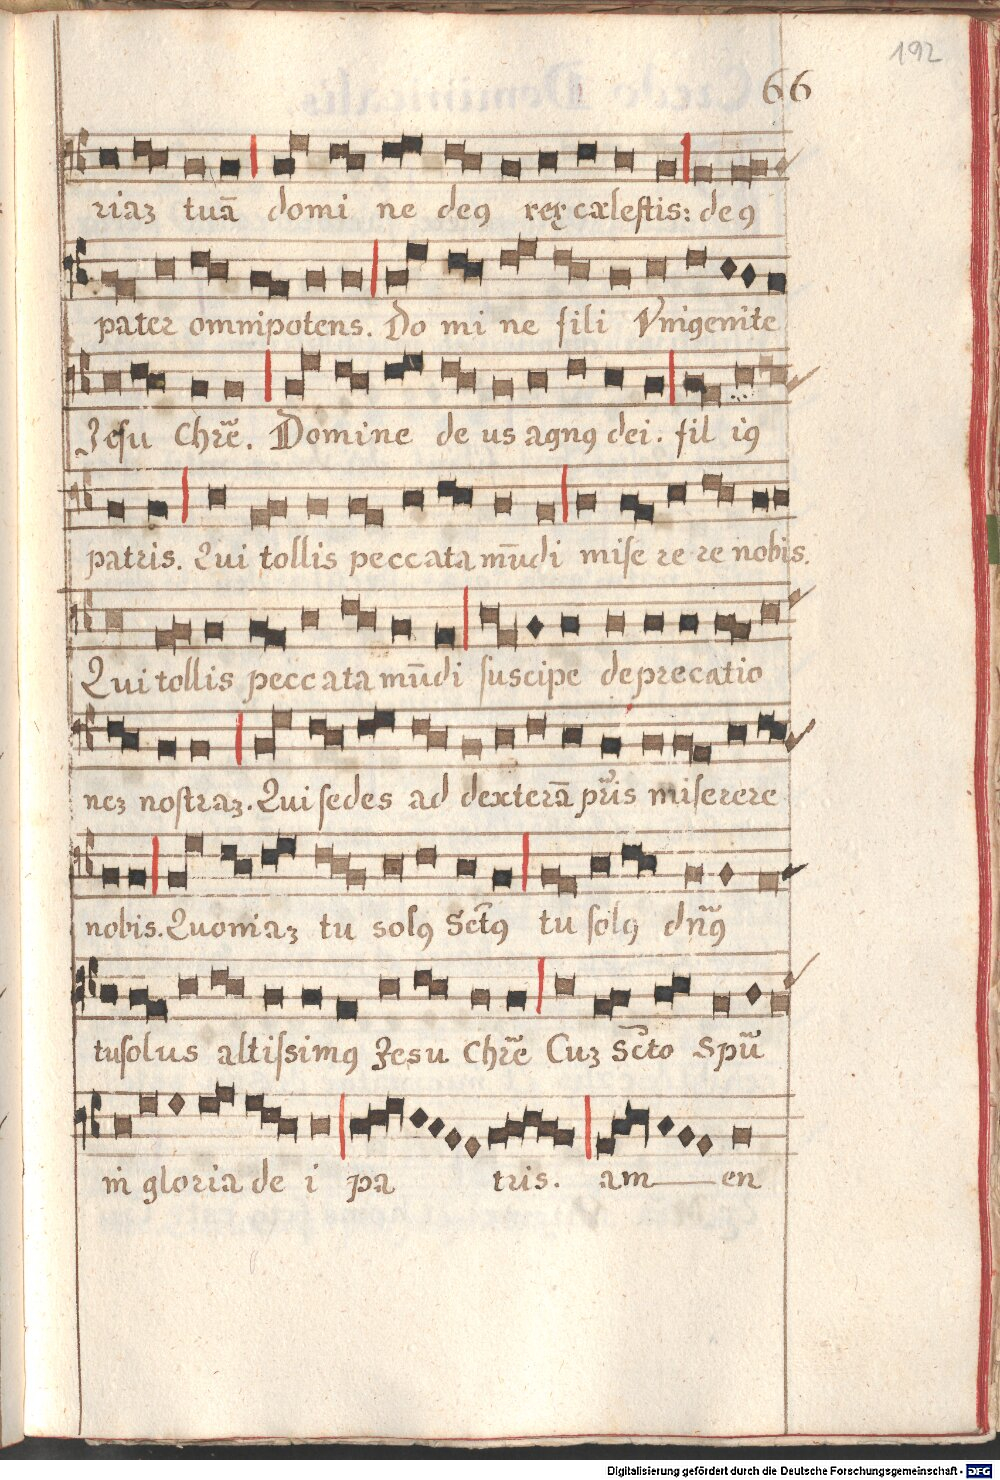 192
66
riaꝫ tuā domi ne deꝯ rex cælestis: deꝯ
pater omnipotens. Do mi ne fili Vnigenite
Jesu Chr̃e. Domine de us agnꝯ dei. fil iꝯ
patris. Qui tollis peccata mūdi mise re re nobis.
Qui tollis peccata mūdi suscipe deprecatio
neꝫ nostraꝫ. Qui sedes ad dexterā pr̃is miserere
nobis. Quoniaꝫ tu solꝯ Sc̃tꝯ tu solꝯ dñꝯ
tu solus altissimꝯ Jesu Chr̃e Cuꝫ Sc̃to Spũ
in gloria de i pa tris. am en
Digitalisierung gefördert durch die Deutsche Forschungsgemeinschaft - DFG